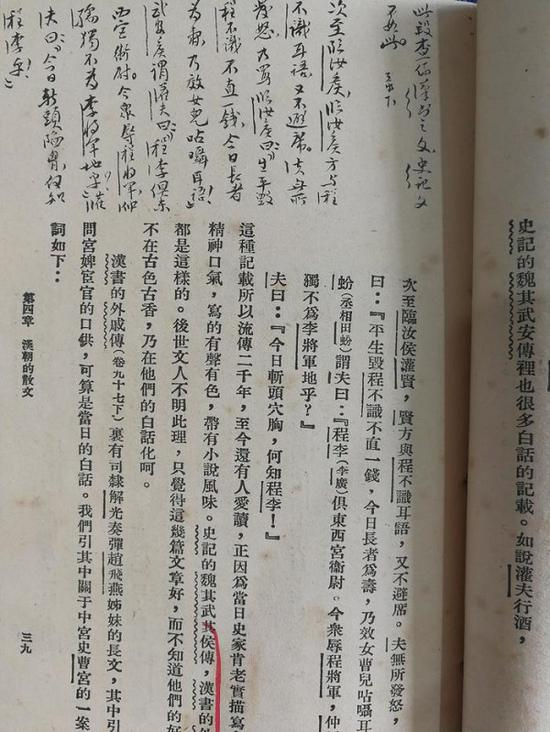 史記的魏其武安傳裡也很多白話的記載。如說灌夫行酒,
不如此
次至臨汝侯,臨汝侯方與程
不識耳語,又不避席。夫無所
發怒,乃罵臨汝侯曰:生平毀
程不識不直一錢,今日長者
為壽,乃效女兒呫囁耳語!
武安侯謂灌夫曰:程李俱東
西宮衛尉,今眾辱程將軍,仲
孺獨不為李將軍地乎?灌
夫曰:今日斬頭陷胸,何知
程李乎!
次至臨汝侯灌賢,賢方與程不識耳語,又不避席。夫無所發怒,
曰:『平生毀程不識不直一錢,今日長者爲壽,乃效女曹兒呫囁耳
蚡(丞相田蚡)謂夫曰:『程李(李廣)俱東西宮衞尉。今衆辱程將軍,仲
獨不爲李將軍地乎?』
夫曰:『今日斬頭穴胸,何知程李!』
這種記載所以流傳二千年,至今還有人愛讀,正因爲當日史家肯老實描寫
精神口氣,寫的有聲有色,帶有小說風味。史記的魏其武其侯傳,漢書的外
都是這樣的。後世文人不明此理,只覺得這幾篇文章好,而不知道他們的好
不在古色古香,乃在他們的白話化呵。
漢書的外戚傳(卷九十七下)裏有司隸解光奏彈趙飛燕姊妹的長文,其中引
問宮婢宦官的口供,可算是當日的白話。我們引其中關于中宮史曹宮的一案
詞如下:
第四章 漢朝的散文
三九